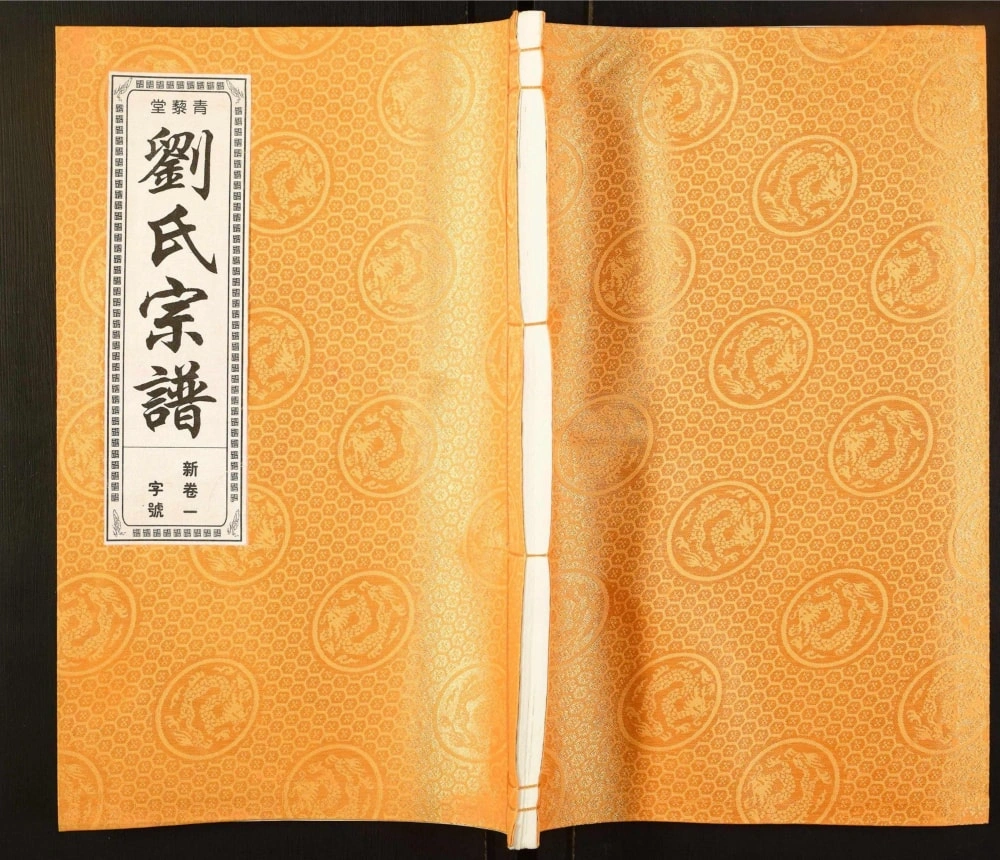 青藜堂
劉氏宗譜
新卷一
字號